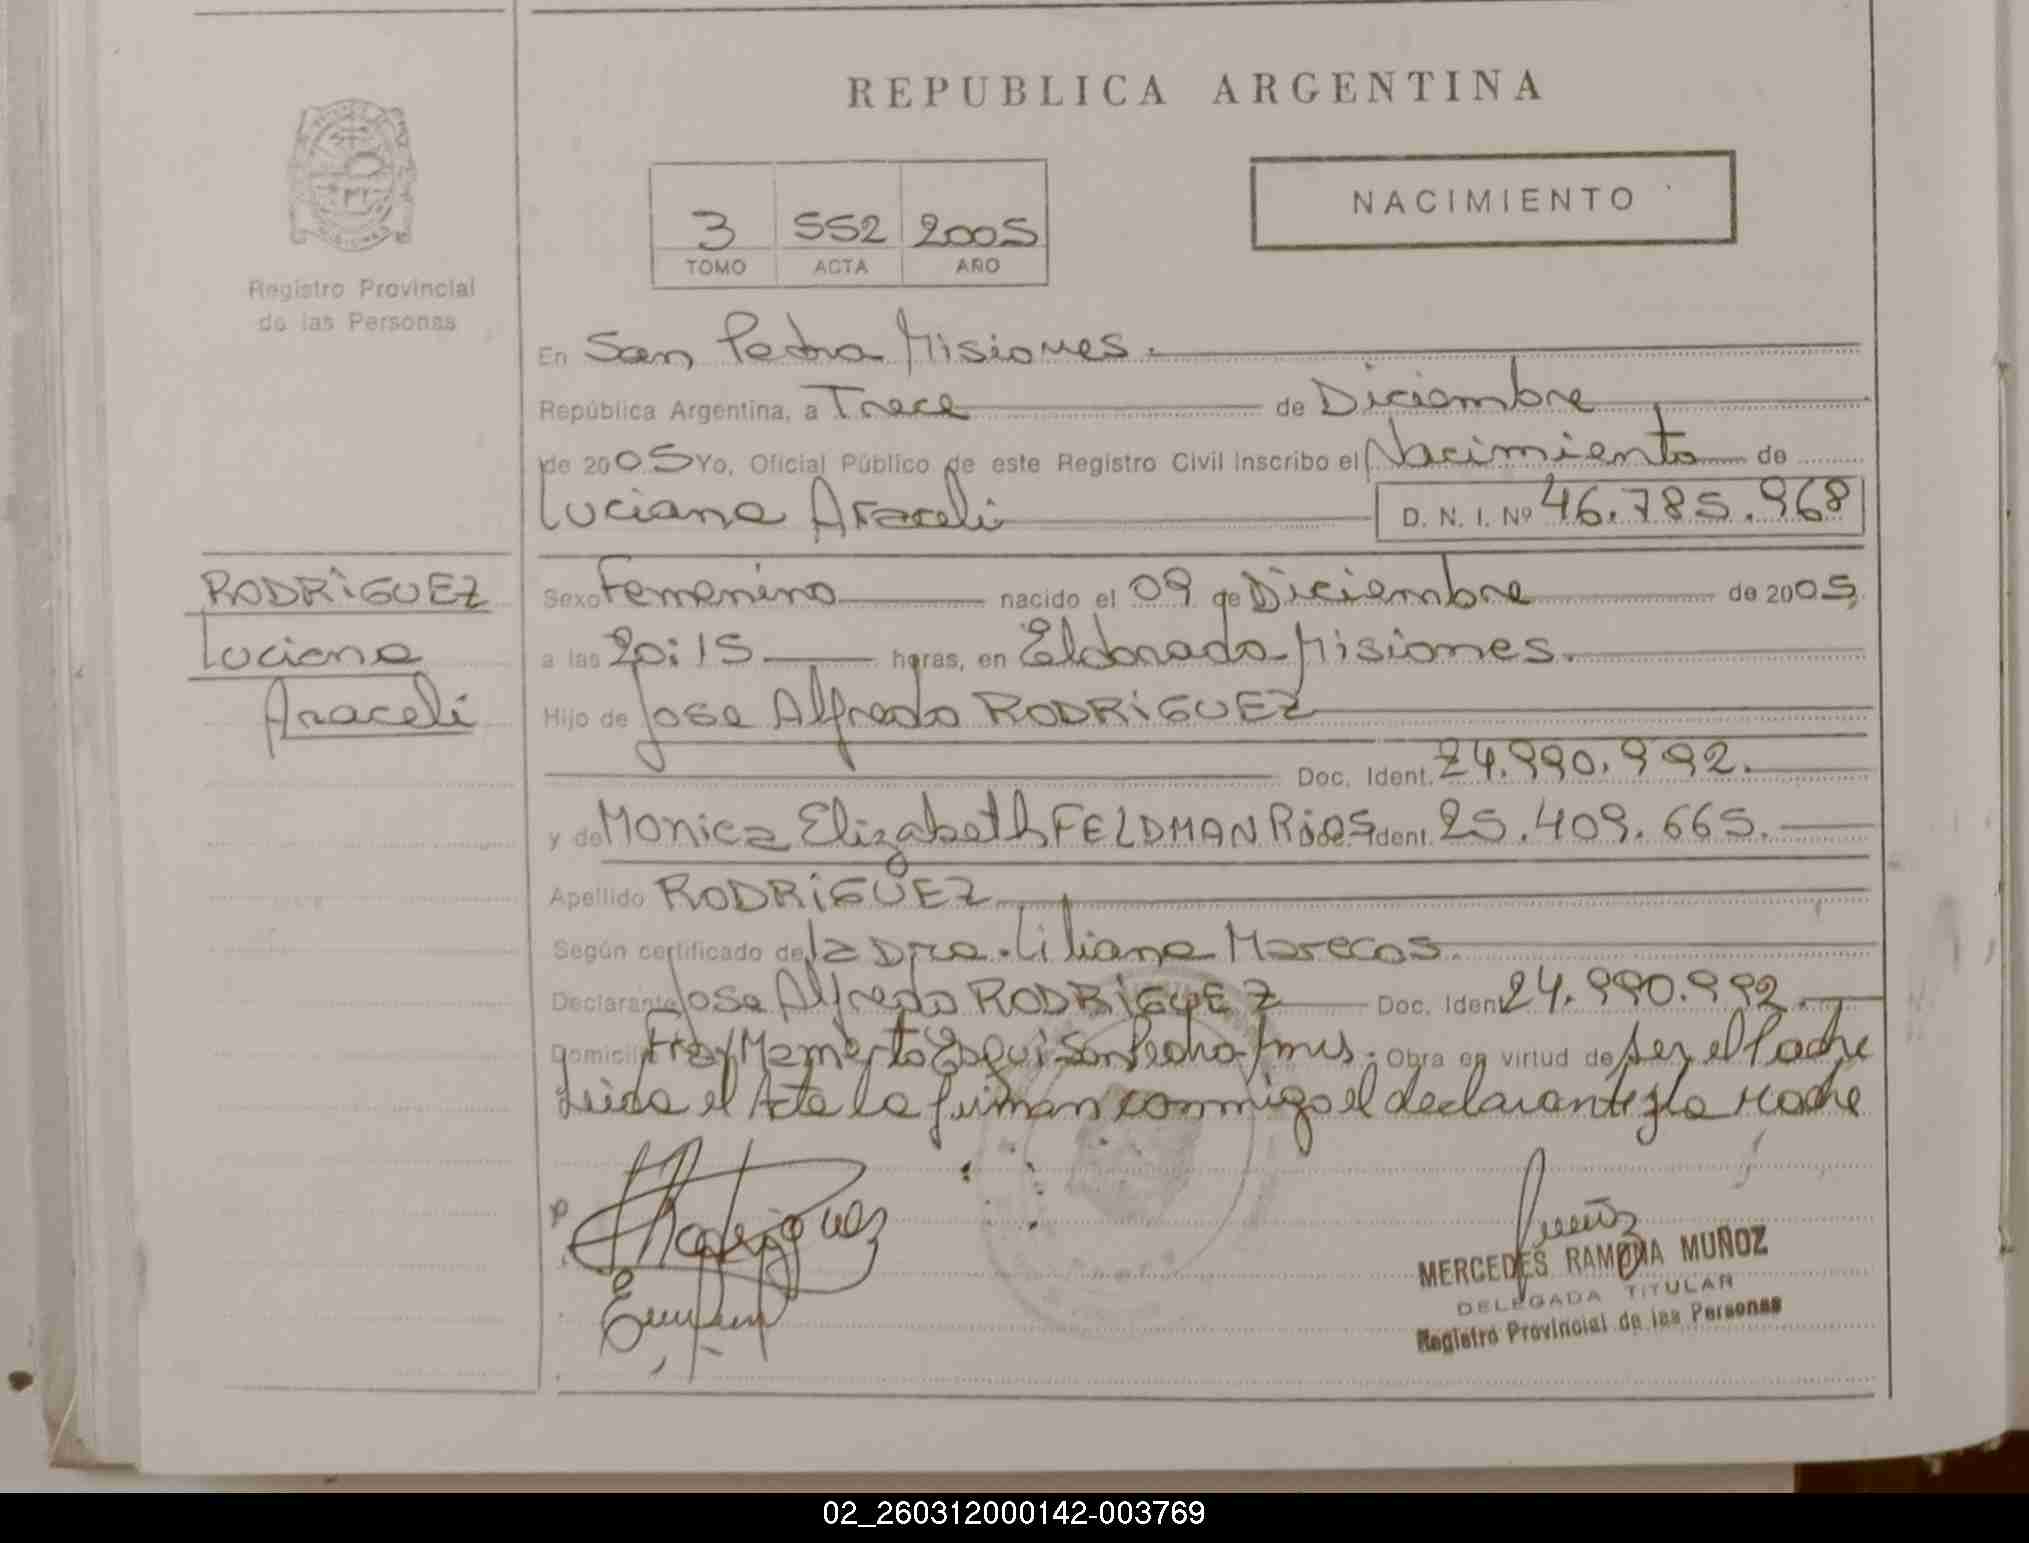 REPUBLICA ARGENTINA
NACIMIENTO
3 552 2005
TOMO ACTA AÑO
Registro Provincial
de las Personas
En San Pedro Misiones.
República Argentina, a Trece de Diciembre
de 2005 Yo, Oficial Público de este Registro Civil inscribo el Nacimiento de
Luciana Araceli D. N. I. Nº 46.785.968
RODRIGUEZ
Luciana
Araceli
Sexo Femenino nacido el 09 de Diciembre de 2005
a las 20:15 horas, en Eldorado Misiones.
Hijo de Jose Alfredo RODRIGUEZ
Doc. Ident. 24.990.992.
y de Monica Elizabeth FELDMAN RiOS Ident. 25.409.665.
Apellido RODRIGUEZ
Según certificado de la Dra. Liliana Marecos.
Declarante Jose Alfredo RODRIGUEZ Doc. Ident 24.990.992.
Domicilio Fray Mamerto Esqui San Pedro Mnes. Obra en virtud de ser el Padre
Leida el Acta la firman conmigo el declarante y la Madre
Rodriguez
MERCEDES RAMONA MUÑOZ
DELEGADA TITULAR
Registro Provincial de las Personas
02_260312000142-003769